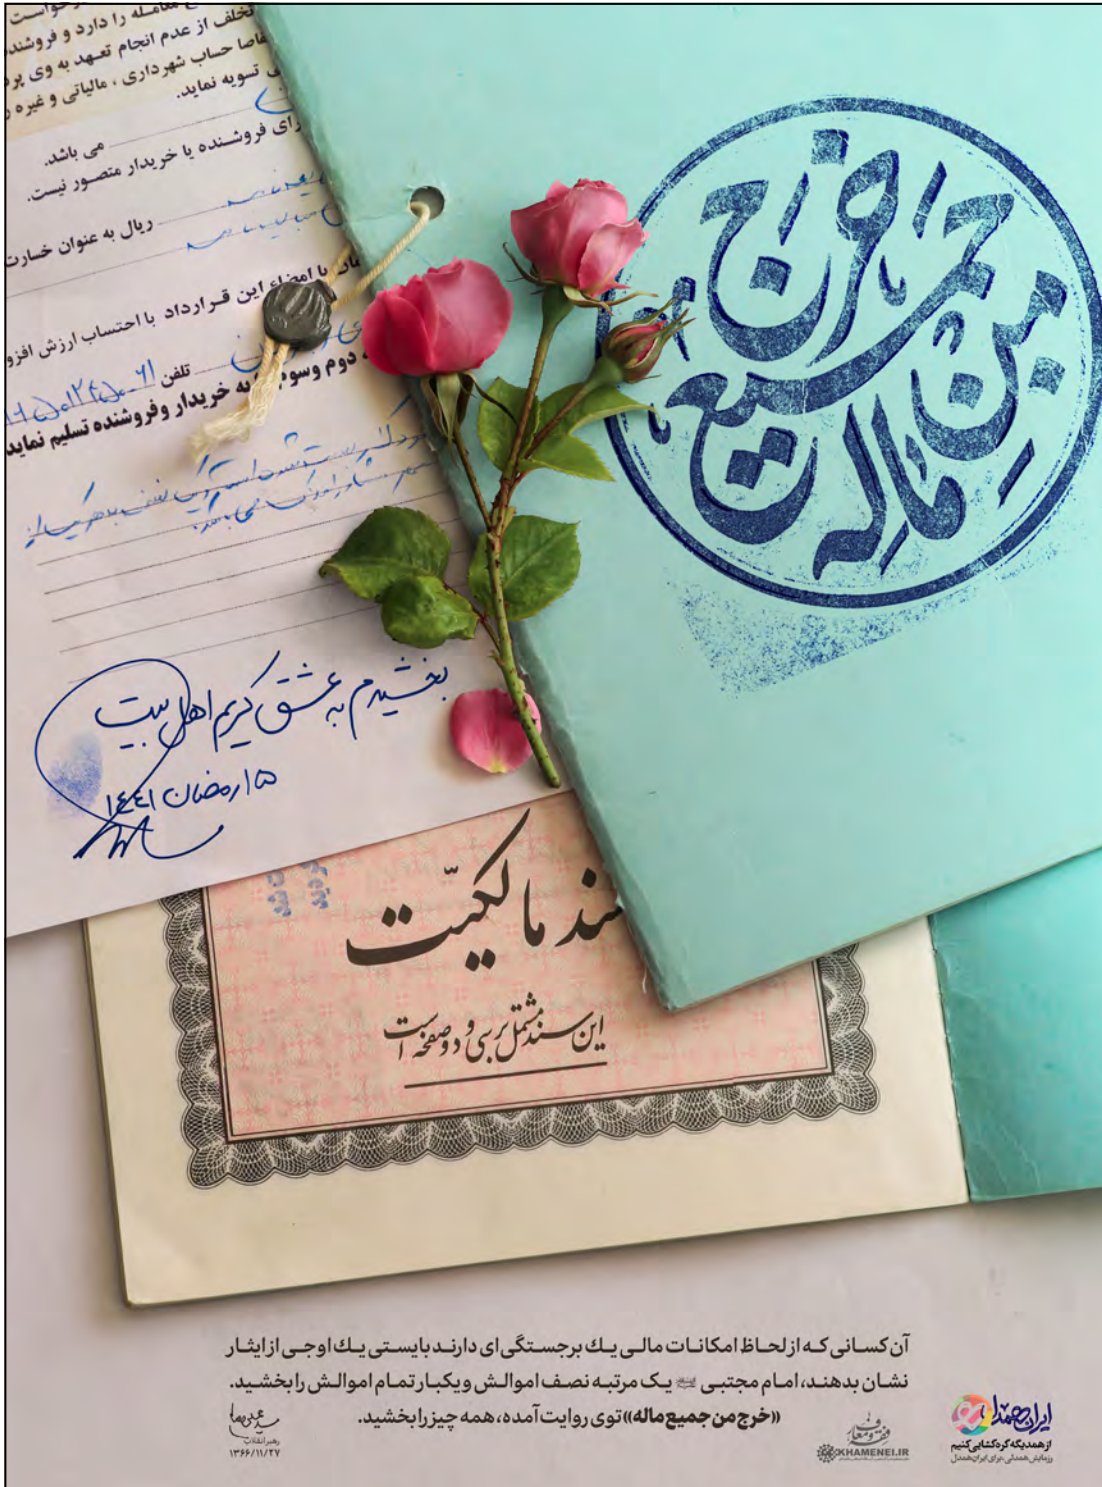 درخواست
معامله را دارد و فروشنده
تخلف از عدم انجام تعهد به وی
مفاصا حساب شهرداری ، مالیاتی و غیره
تسویه نماید.
می باشد.
برای فروشنده یا خریدار متصور نیست.
ریال به عنوان خسارت
با امضاء این قرارداد با احتساب ارزش
تلفن
دوم وسوم به خریدار وفروشنده تسلیم نماید
خرج من جمیع ماله
بخشیدم به عشق کریم اهل بیت
۱۵ رمضان ۱۴۴۱
سند مالکیّت
این سند مشتمل بر سی و دو صفحه است
آن کسانی که از لحاظ امکانات مالی یك برجستگی ای دارند بایستی یك اوجی از ایثار
نشان بدهند، امام مجتبی یک مرتبه نصف اموالش و یکبار تمام اموالش را بخشید.
«خرج من جمیع ماله» توی روایت آمده، همه چیز را بخشید.
رهبر انقلاب
۱۳۶۶/۱۱/۲۷
فقه و معارف
KHAMENEI.IR
ایران همدل
از همدیگه گره گشایی کنیم
رزمایش همدلی، برای ایران همدل